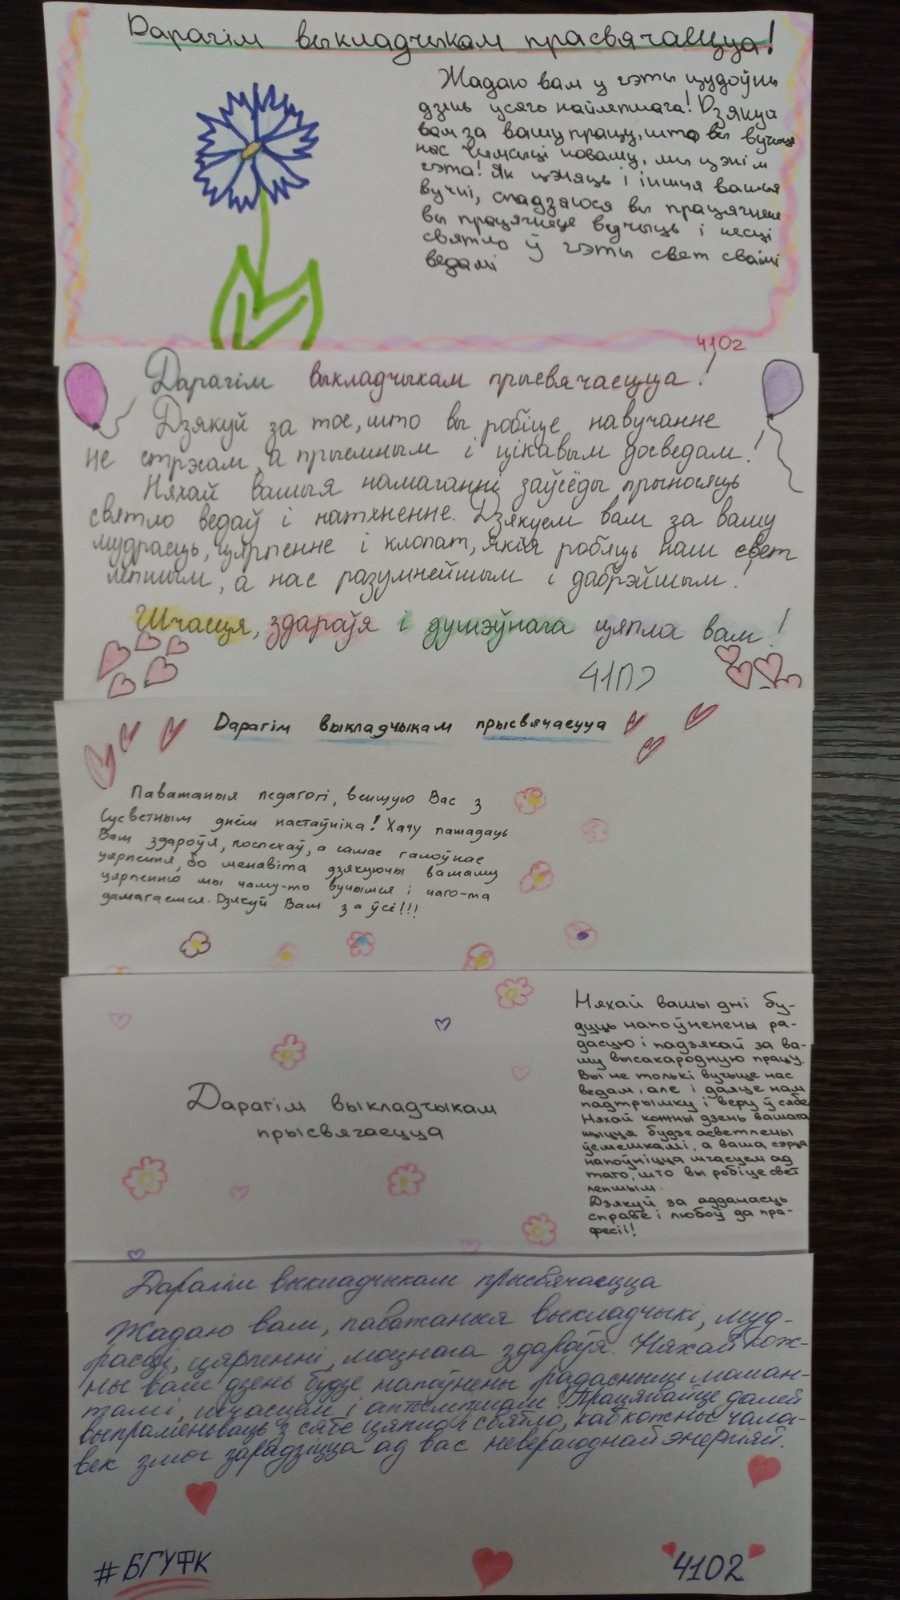 Дарагім выкладчыкам прасвячаецца!
Жадаю вам у гэты цудоўны
дзень усяго найлепшага! Дзякуй
вам за вашу працу, што вы вучыце
нас чамусці новаму, мы цэнім
гэта! Як цэняць і іншыя вашыя
вучні, спадзяюся вы працягнеце
вы працягнеце вучыць і несці
святло ў гэты свет сваімі
ведамі
4102
Дарагім выкладчыкам прысвячаецца!
Дзякуй за тое, што вы робіце навучанне
не стрэсам, а прыемным і цікавым досведам!
Няхай вашыя намаганні заўсёды прыносяць
святло ведаў і натхненне. Дзякуем вам за вашу
мудрасць, цярпенне і клопат, якія робяць наш свет
лепшым, а нас разумнейшым і дабрэйшым!
Шчасця, здароўя і душэўнага цяпла вам!
4102
Дарагім выкладчыкам прысвячаецца
Паважаныя педагогі, віншую Вас з
Сусветным днём настаўніка! Хачу пажадаць
Вам здароўя, поспехаў, а самае галоўнае
цярпення, бо менавіта дзякуючы вашаму
цярпенню мы чаму-то вучымся і чаго-та
дамагаемся. Дзякуй Вам за ўсё!!!
Дарагім выкладчыкам
прысвячаецца
Няхай вашы дні бу-
дуць напоўненены ра-
дасцю і падзякай за ва-
шу высакародную працу.
Вы не толькі вучыце нас
ведам, але і даяце нам
падтрымку і веру ў сябе
Няхай кожны дзень вашага
жыцця будзе асветлены
ўсмешкамі, а ваша сэрца
напоўніцца шчасцем ад
таго, што вы робіце свет
лепшым.
Дзякуй за адданасць
справе і любоў да пра-
фесіі!
Дарагім выкладчыкам прысвячаецца
Жадаю вам, паважаныя выкладчыкі, муд-
расці, цярпенні, моцнага здароўя. Няхай кож-
ны ваш дзень будзе напоўнены радаснымі маман-
тамі, шчасцем і аптымізмам. Працягвайце далей
выпраменьваць з сябе цяпло і святло, каб кожны чала-
век змог зарадзіцца ад вас неверагоднай энергіяй.
#БГУФК
4102